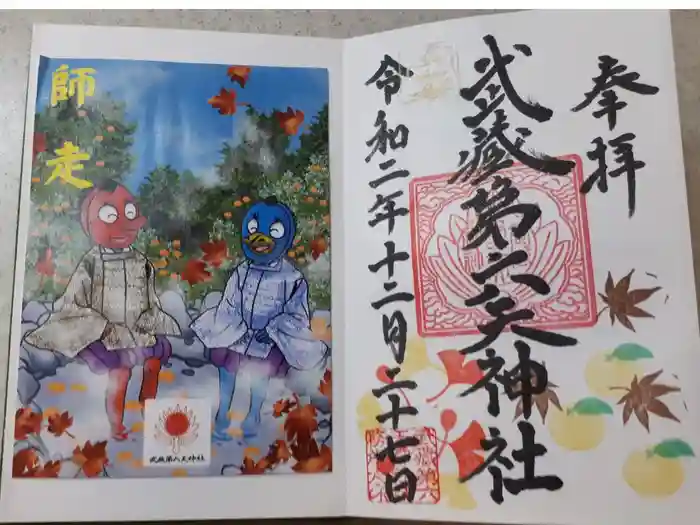 師走
武蔵第六天神社
奉拝
武蔵第六天神社
令和二年十二月二十七日